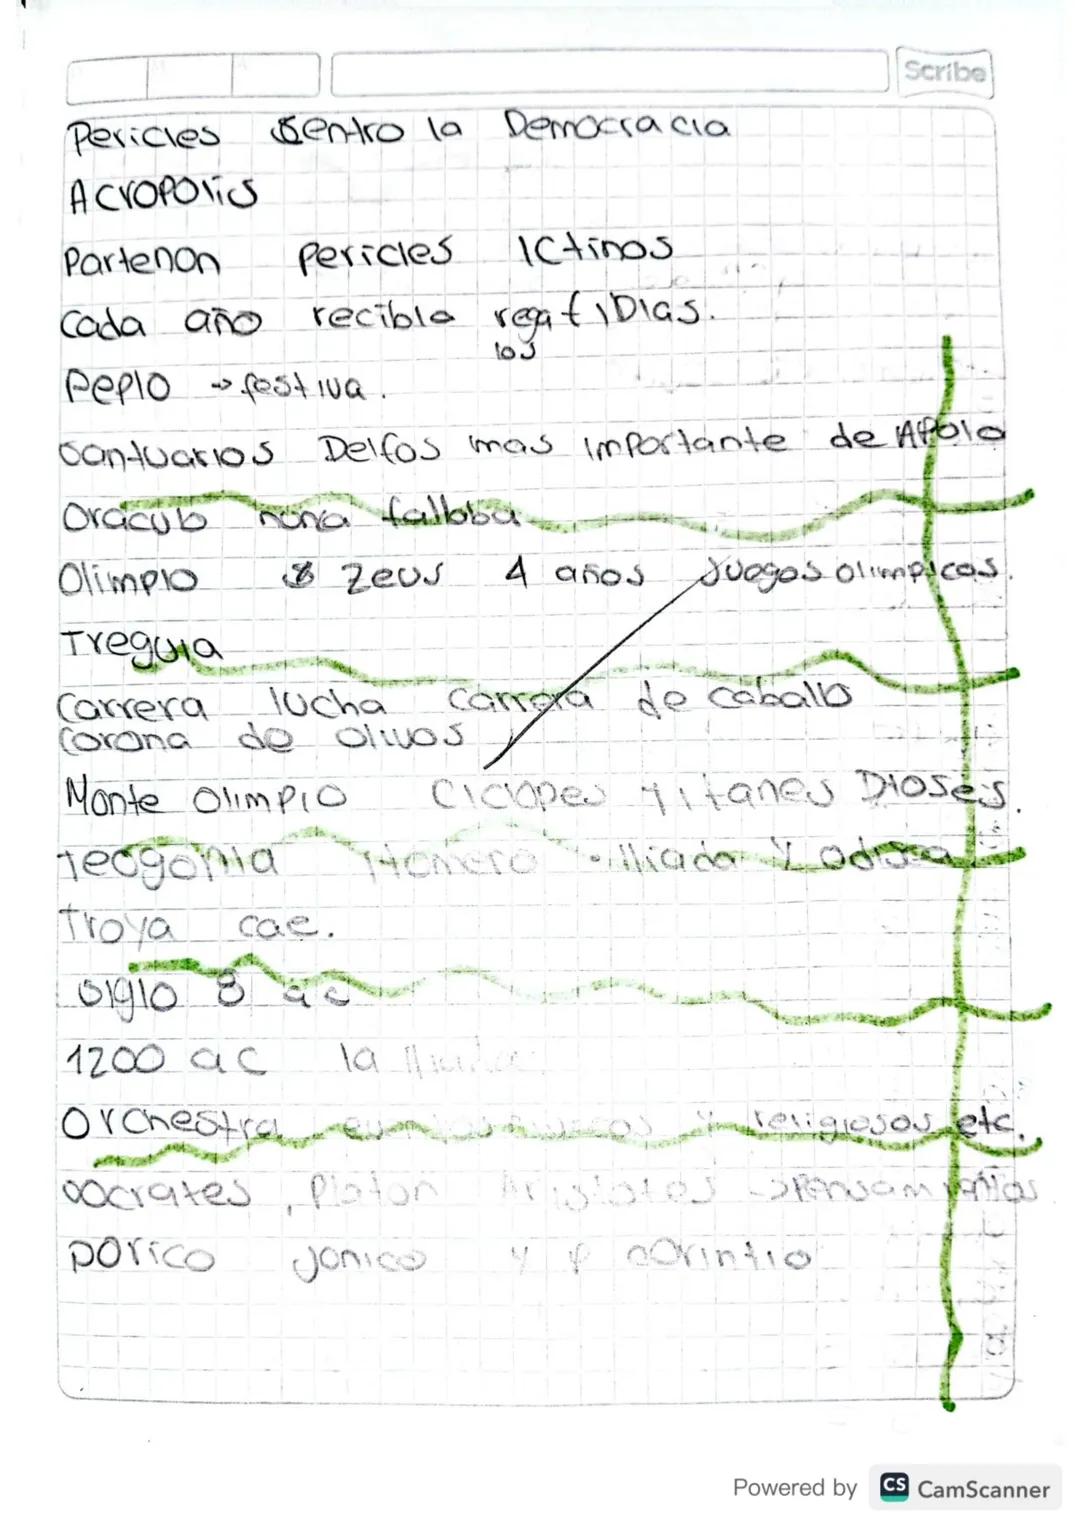 Scribe
Pericles Sentro la Democracia
Acropolis
Partenon Pericles Ictinos
Cada año recibia rega fiDias.
los
Peplo → festiva.
Santuarios Delfos mas importante de Apolo
Oraculo nunca fallaba
Olimpio Zeus 4 años Juegos olimpicos.
Treguia
Carrera lucha carrera de caballo
Corona de olivos
Monte Olimpio Ciclopes titanes Dioses.
Teogonia Homero Iliada y odisea
Troya cae.
Siglo 8 ac
1200 ac la
Orchestra y religiosos etc.
Socrates, Platon Aristotes
porico Jonico y corintio
Powered by CS CamScanner